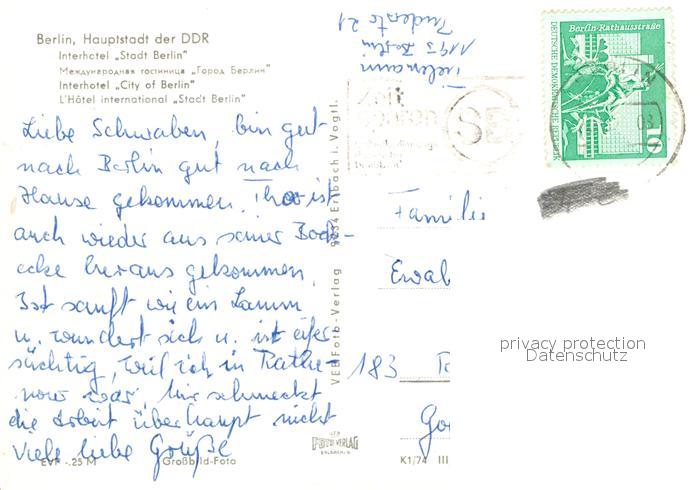 Berlin, Hauptstadt der DDR
Interhotel „Stadt Berlin"
Международная гостиница „Город Берлин"
Interhotel „City of Berlin"
L'Hôtel international „Stadt Berlin"
Liebe Schwaben, bin gut
nach Berlin gut nach
Hause gekommen. ist
auch wieder aus seiner Bock-
ecke heraus gekommen.
Ist sanft wie ein Lamm
u. wundert sich u. ist eifer-
süchtig, weil ich in Rathe-
now war, mir schmeckt
die Arbeit überhaupt nicht
Viele liebe Grüße
EVP -.25 M
Großbild-Foto
VEB Foto-Verlag 9934 Erlbach i. Vogtl.
FOTO VERLAG
ERLBACH/V.
K1/74 III
Tielmann
1193 Berlin
21
Zeit
sparen
Berlin-Rathausstraße
DEUTSCHE DEMOKRATISCHE REPUBLIK
10
Familie
Ewal
183
Go
privacy protection
Datenschutz